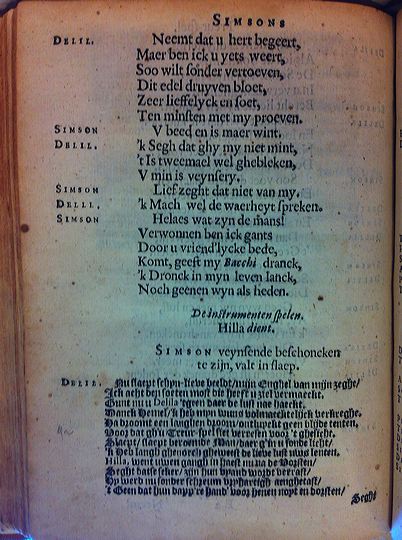 SIMSONS
DELIL. Neemt dat u hert begeert,
Maer ben ick u yets weert,
Soo wilt sonder vertoeven,
Dit edel druyven bloet,
Zeer lieffelyck en soet,
Ten minsten met my proeven.
SIMSON V beed en is maer wint.
DELIL. 'k Segh dat ghy my niet mint,
't Is tweemael wel ghebleken,
V min is veynsery.
SIMSON Lief zeght dat niet van my.
DELIL. 'k Mach wel de waerheyt spreken.
SIMSON Helaes wat zyn de mans!
Verwonnen ben ick gants
Door u vriend'lycke bede,
Komt, geeft my Bacchi dranck,
'k Dronck in myn leven lanck,
Noch geenen wyn als heden.
De instrumenten spelen.
Hilla dient.
SIMSON veynsende beschoncken
te zijn, valt in slaep.
DELIL. Nu slaept schyn-lieve beeldt/ mijn Enghel van mijn zeghe/
Ick acht den soeten most die heeft u ziel vermaeckt.
Gunt nu Delila tegen daer de lust nae haeckt.
Danck Hemel/ ick heb mijn wuns volmaecktelijck verkreghe.
Slaept/ slaept beroemde Man/ daer
'k Heb langh ghenoegh gheweest de lieve lust uws lenten.
Hilla, went uwen gangh in haest nu na de Vorsten/
Seght datse
't Geen dat hun dapp're hand' voor henen nopt en dorsten/
Seght